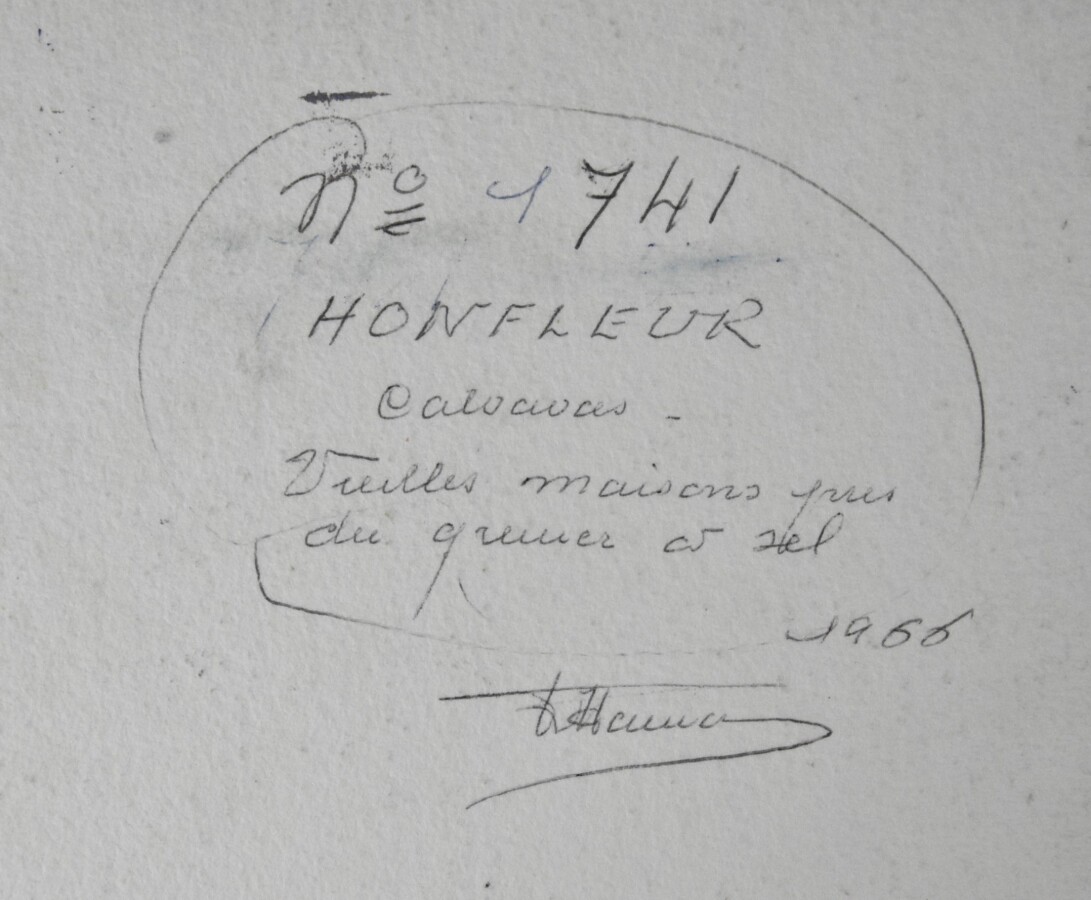 Nº 1741
HONFLEUR
Calvados -
Vieilles maisons près
du grenier à sel
1966